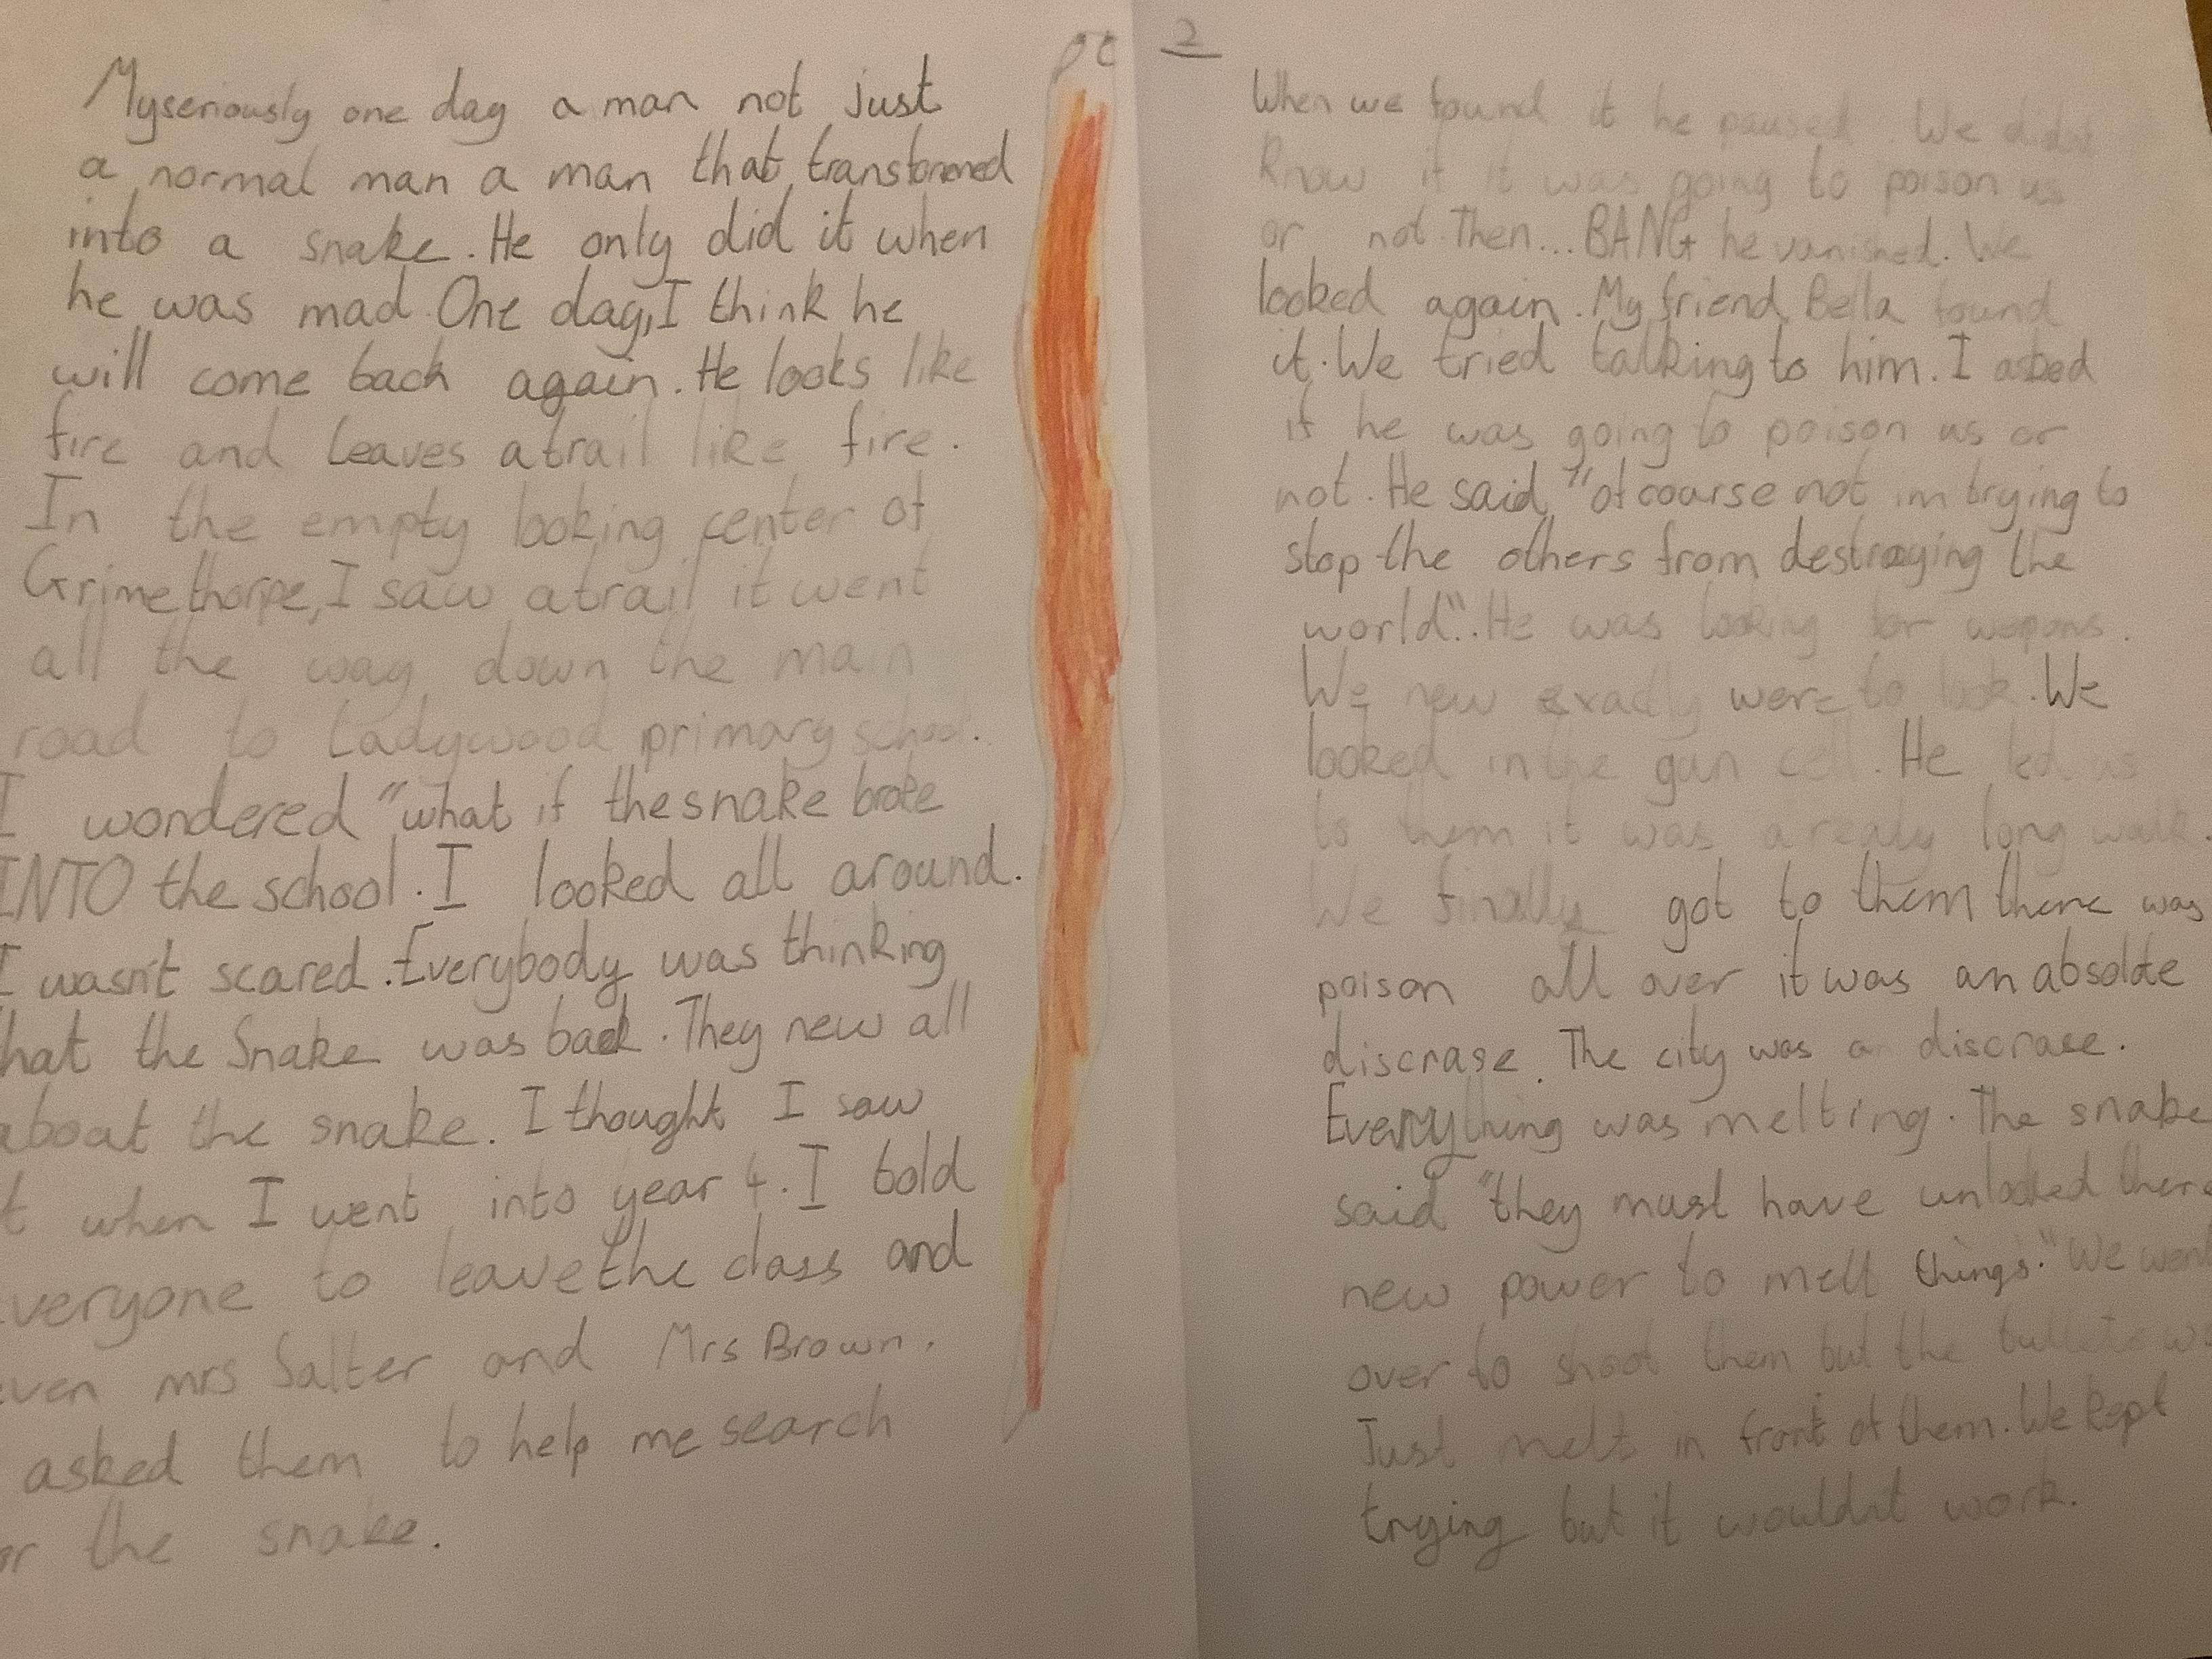 Myseriously one day a man not just
a normal man a man that transformed
into a snake. He only did it when
he was mad. One day, I think he
will come back again. He looks like
fire and leaves a trail like fire.
In the empty looking center of
Grimethorpe, I saw a trail it went
all the way down the main
road to Ladywood primary school.
I wondered "what if the snake broke
INTO the school. I looked all around.
I wasn't scared. Everybody was thinking
hat the Snake was back. They new all
about the snake. I thought I saw
t when I went into year 4. I told
everyone to leave the class and
even mrs Salter and Mrs Brown.
asked them to help me search
or the snake.
2
When we found it he paused. We didn't
Know if it was going to poison us
or not. Then... BANG he vanished. We
looked again. My friend Bella found
it. We tried talking to him. I asked
if he was going to poison us or
not. He said "of course not im trying to
stop the others from destroying the
world". He was looking for wepons.
We new exadly were to look. We
looked in the gun cell. He led us
to them it was a realy long walk.
We finally got to them there was
poison all over it was an absolote
discrase. The city was a discrase.
Everything was melting. The snake
said "they must have unlocked there
new power to melt things." We went
over to shoot them but the bullets
Just melt in front of them. We kept
trying but it wouldn't work.